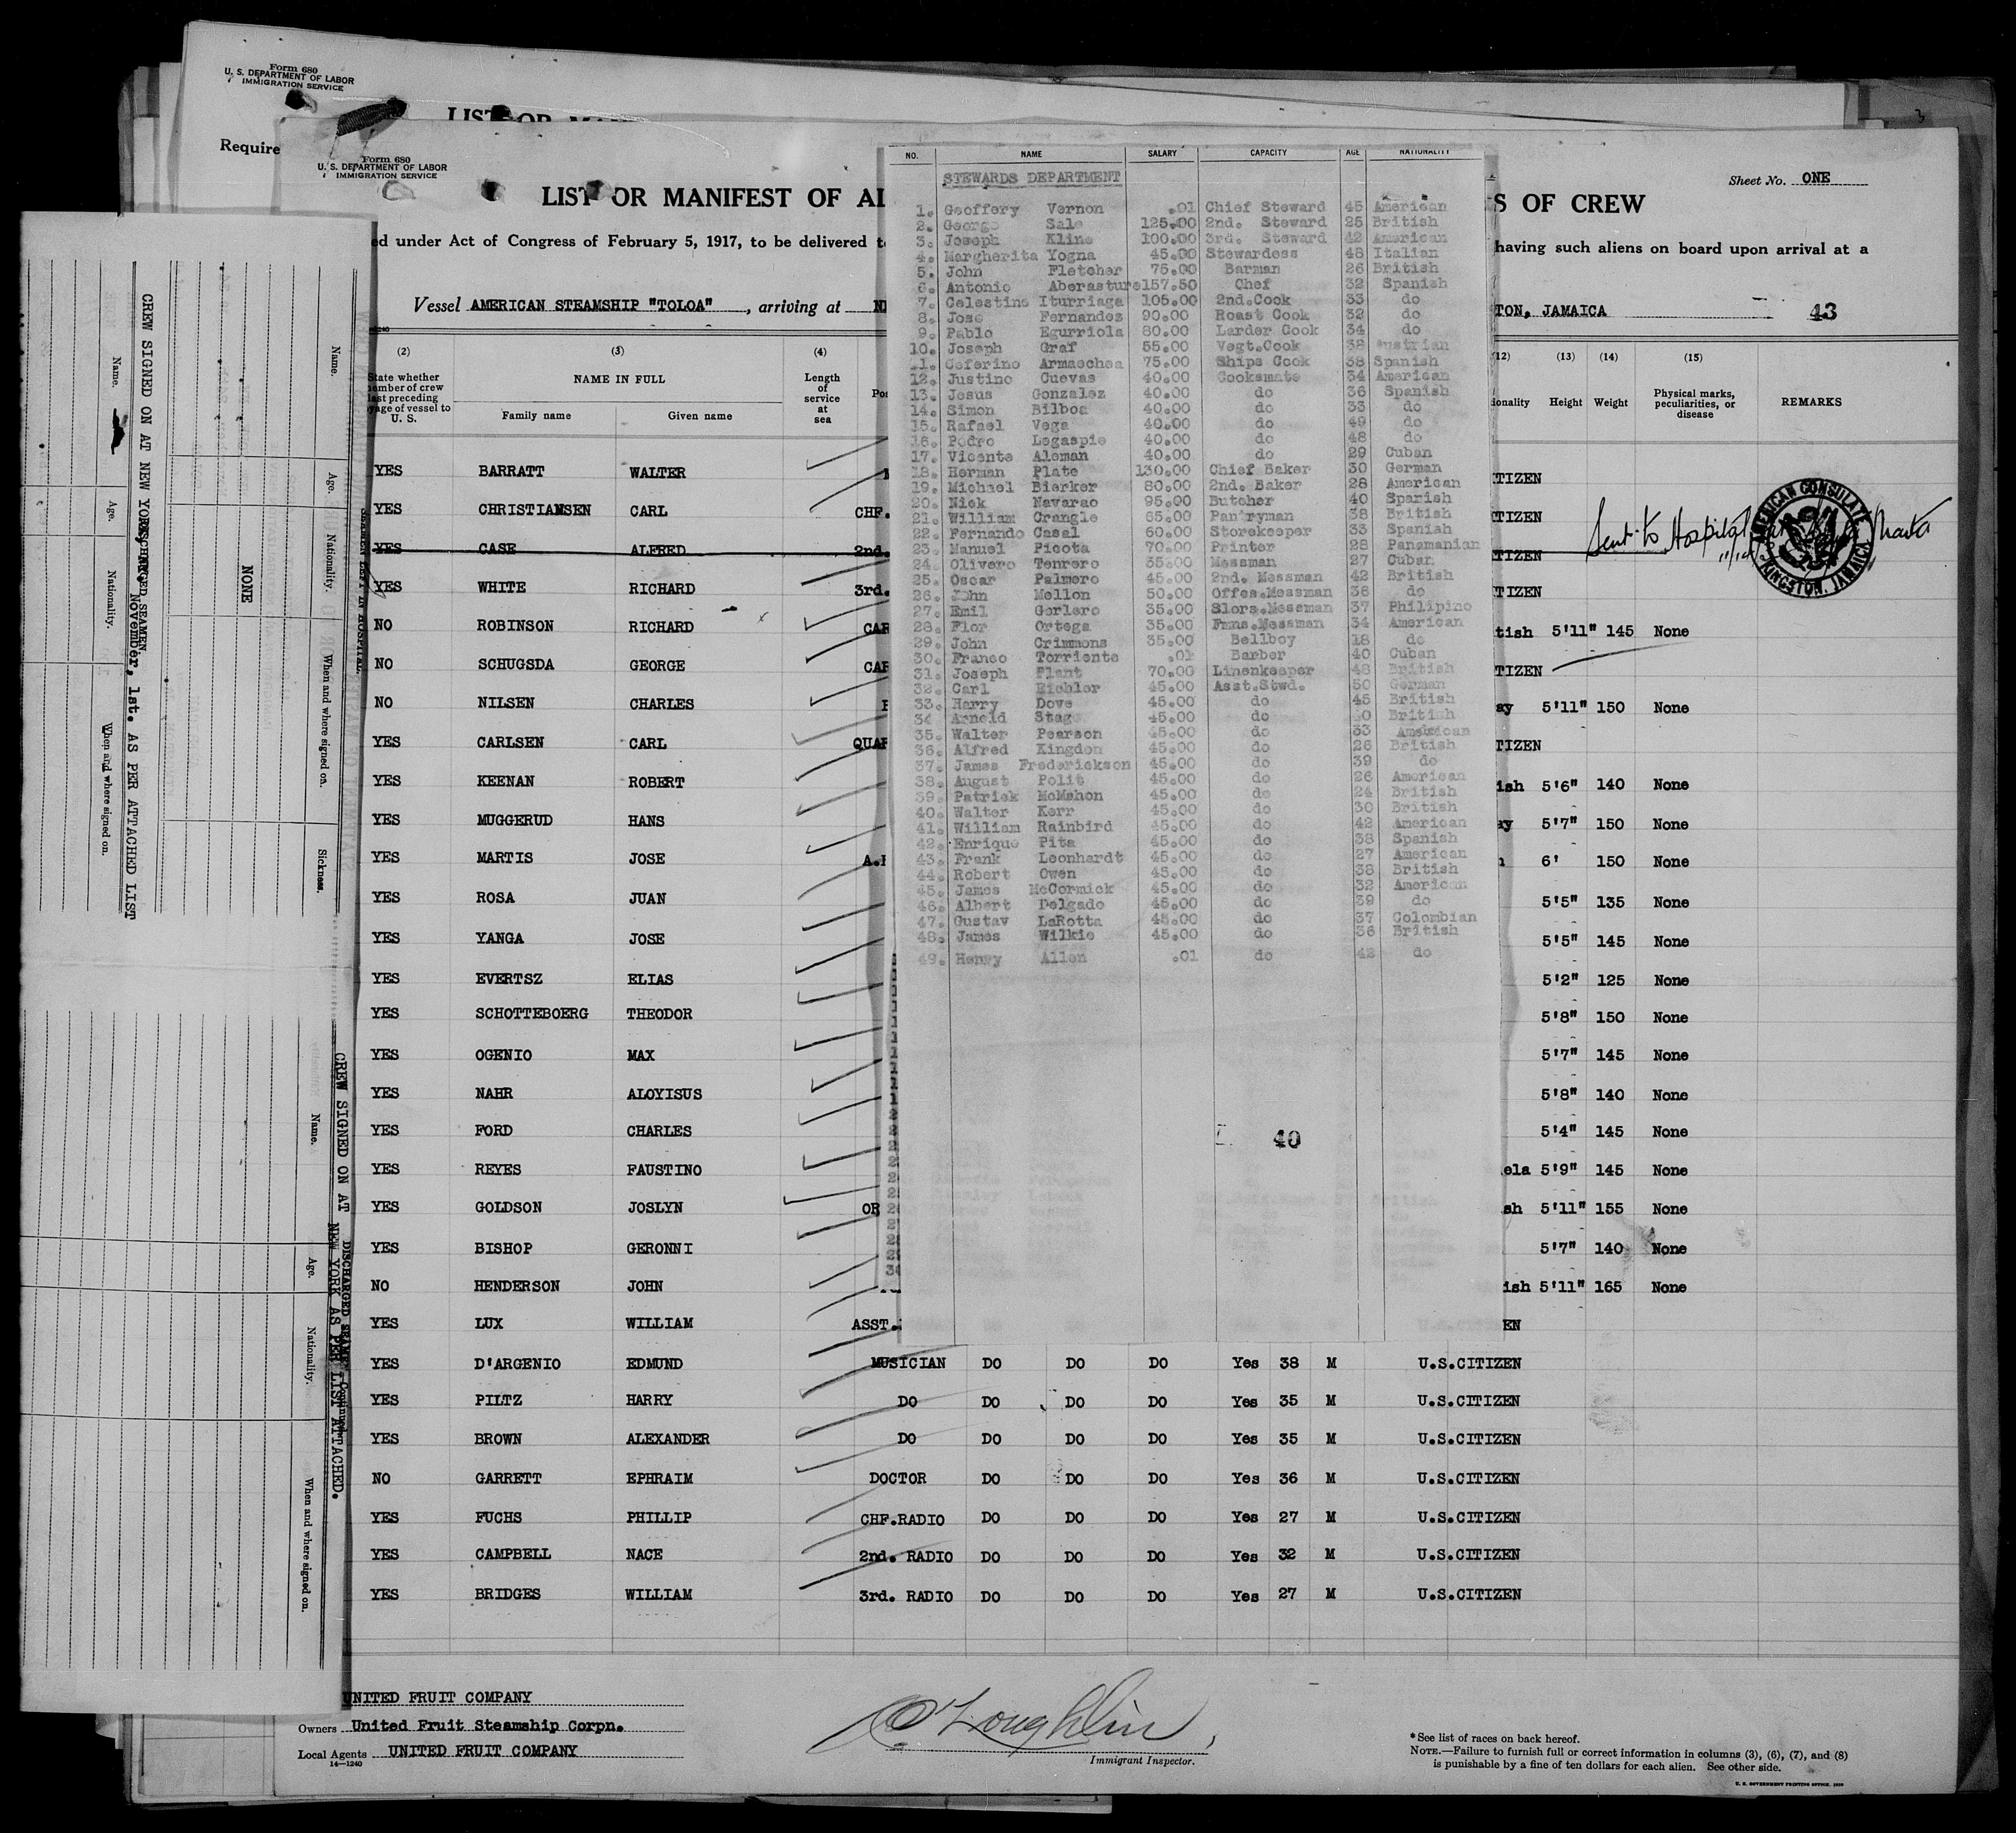 Form 680
U. S. DEPARTMENT OF LABOR
IMMIGRATION SERVICE
Require
Form 680
U. S. DEPARTMENT OF LABOR
IMMIGRATION SERVICE
LIST OR MANIFEST OF AL
S OF CREW
Sheet No. ONE
ed under Act of Congress of February 5, 1917, to be delivered t
having such aliens on board upon arrival at a
Vessel AMERICAN STEAMSHIP "TOLOA", arriving at
TON, JAMAICA
43
(2) (3) (4) (12) (13) (14) (15)
State whether member of crew last preceding voyage of vessel to U. S.
NAME IN FULL
Family name Given name
Length of service at sea
Height Weight Physical marks, peculiarities, or disease REMARKS
YES BARRATT WALTER TIZEN
YES CHRISTIANSEN CARL CHF. TIZEN
YES CASE ALFRED 2nd. TIZEN Sent to Hospital
YES WHITE RICHARD 3rd. TIZEN
NO ROBINSON RICHARD CAR tish 5'11" 145 None
NO SCHUGSDA GEORGE CAR TIZEN
NO NILSEN CHARLES ay 5'11" 150 None
YES CARLSEN CARL QUAR TIZEN
YES KEENAN ROBERT ish 5'6" 140 None
YES MUGGERUD HANS ay 5'7" 150 None
YES MARTIS JOSE 6' 150 None
YES ROSA JUAN 5'5" 135 None
YES YANGA JOSE 5'5" 145 None
YES EVERTSZ ELIAS 5'2" 125 None
YES SCHOTTEBOERG THEODOR 5'8" 150 None
YES OGENIO MAX 5'7" 145 None
YES NAHR ALOYISUS 5'8" 140 None
YES FORD CHARLES 5'4" 145 None
YES REYES FAUSTINO ela 5'9" 145 None
YES GOLDSON JOSLYN OR sh 5'11" 155 None
YES BISHOP GERONNI 5'7" 140 None
NO HENDERSON JOHN ish 5'11" 165 None
YES LUX WILLIAM ASST. EN
YES D'ARGENIO EDMUND MUSICIAN DO DO DO Yes 38 M U.S.CITIZEN
YES PILTZ HARRY DO DO DO DO Yes 35 M U.S.CITIZEN
YES BROWN ALEXANDER DO DO DO DO Yes 35 M U.S.CITIZEN
NO GARRETT EPHRAIM DOCTOR DO DO DO Yes 36 M U.S.CITIZEN
YES FUCHS PHILLIP CHF.RADIO DO DO DO Yes 27 M U.S.CITIZEN
YES CAMPBELL NACE 2nd. RADIO DO DO DO Yes 32 M U.S.CITIZEN
YES BRIDGES WILLIAM 3rd. RADIO DO DO DO Yes 27 M U.S.CITIZEN
AMERICAN CONSULATE
KINGSTON, JAMAICA
NO. NAME SALARY CAPACITY AGE NATIONALITY
STEWARDS DEPARTMENT
1. Geoffery Vernon .01 Chief Steward 45 American
2. George Sale 125.00 2nd. Steward 25 British
3. Joseph Kline 100.00 3rd. Steward 42 American
4. Margherita Yogna 45.00 Stewardess 48 Italian
5. John Fletcher 75.00 Barman 26 British
6. Antonio Aberasture 157.50 Chef 32 Spanish
7. Celestino Iturriaga 105.00 2nd.Cook 33 do
8. Jose Fernandez 90.00 Roast Cook 32 do
9. Pablo Egurriola 80.00 Larder Cook 34 do
10. Joseph Graf 55.00 Vegt.Cook 38 Austrian
11. Ceferino Armaechea 75.00 Ships Cook 38 Spanish
12. Justino Cuevas 40.00 Cooksmate 34 American
13. Jesus Gonzalez 40.00 do 36 Spanish
14. Simon Bilboa 40.00 do 33 do
15. Rafael Vega 40.00 do 49 do
16. Pedro Legaspie 40.00 do 48 do
17. Vicente Aleman 40.00 do 29 Cuban
18. Herman Plate 130.00 Chief Baker 30 German
19. Michael Bierker 80.00 2nd. Baker 28 American
20. Nick Navarao 95.00 Butcher 40 Spanish
21. William Crangle 65.00 Pantryman 38 British
22. Fernando Casal 60.00 Storekeeper 33 Spanish
23. Manuel Picota 70.00 Printer 28 Panamanian
24. Olivero Tenrero 35.00 Messman 27 Cuban
25. Oscar Palmero 45.00 2nd. Messman 42 British
26. John Mellon 50.00 Offcs.Messman 36 do
27. Emil Gerlero 35.00 Slors.Messman 37 Philipino
28. Flor Ortega 35.00 Fmns.Messman 34 American
29. John Crimmons 35.00 Bellboy 18 do
30. Franco Torriente .01 Barber 40 Cuban
31. Joseph Plant 70.00 Linenkeeper 48 British
32. Carl Eichler 45.00 Asst.Stwd. 50 German
33. Harry Dove 45.00 do 45 British
34 Arnold Stag 45.00 do 40 British
35. Walter Pearson 45.00 do 33 American
36. Alfred Kingdon 45.00 do 26 British
37. James Frederickson 45.00 do 39 do
38. August Polit 45.00 do 26 American
39. Patrick McMahon 45.00 do 24 British
40. Walter Kerr 45.00 do 30 British
41. William Rainbird 45.00 do 42 American
42. Enrique Pita 45.00 do 38 Spanish
43. Frank Leonhardt 45.00 do 27 American
44. Robert Owen 45.00 do 38 British
45. James McCormick 45.00 do 32 American
46. Albert Delgado 45.00 do 39 do
47. Gustav LaRotta 45.00 do 37 Colombian
48. James Wilkie 45.00 do 36 British
49. Henry Allen .01 do 42 do
40
UNITED FRUIT COMPANY
Owners United Fruit Steamship Corpn.
Local Agents UNITED FRUIT COMPANY
14—1240
O'Loughlin
Immigrant Inspector.
* See list of races on back hereof.
NOTE.—Failure to furnish full or correct information in columns (3), (6), (7), and (8)
is punishable by a fine of ten dollars for each alien. See other side.
Name. Age. Nationality. When and where signed on. Sickness.
NONE
CREW SIGNED ON AT NEW YORK, November, 1st. AS PER ATTACHED LIST
DISCHARGED SEAMEN.
Name. Age. Nationality. When and where signed on.
SEAMEN LEFT IN HOSPITAL
CREW SIGNED ON AT NEW YORK AS PER LIST ATTACHED.
DISCHARGED SEAMEN—Continued
Name. Age. Nationality. When and where signed on.